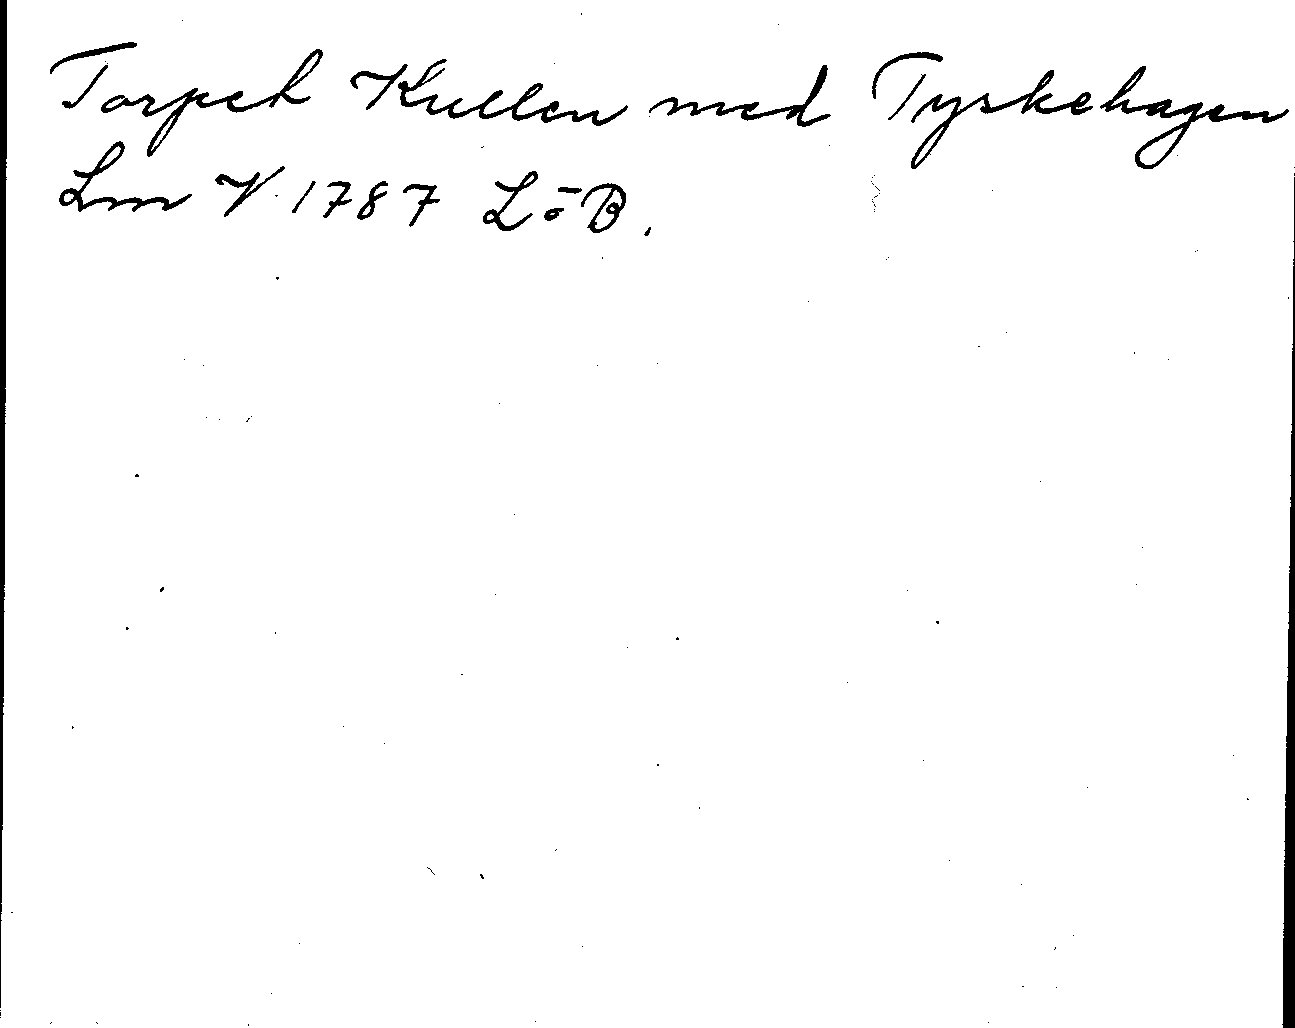 Torpet Kullen med Tyskehagen
Lm V 1787 LöB.